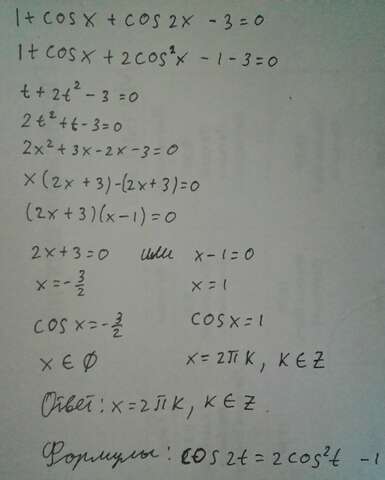 1 + cosx + cos2x - 3 = 0
1 + cosx + 2cos²x - 1 - 3 = 0
t + 2t² - 3 = 0
2t² + t - 3 = 0
2x² + 3x - 2x - 3 = 0
x(2x + 3) - (2x + 3) = 0
(2x + 3)(x - 1) = 0
2x + 3 = 0 или x - 1 = 0
x = - 3/2 x = 1
cosx = - 3/2 cosx = 1
x ∈ ∅ x = 2πk, k ∈ Z
Ответ: x = 2πk, k ∈ Z.
Формулы: cos2t = 2cos²t - 1